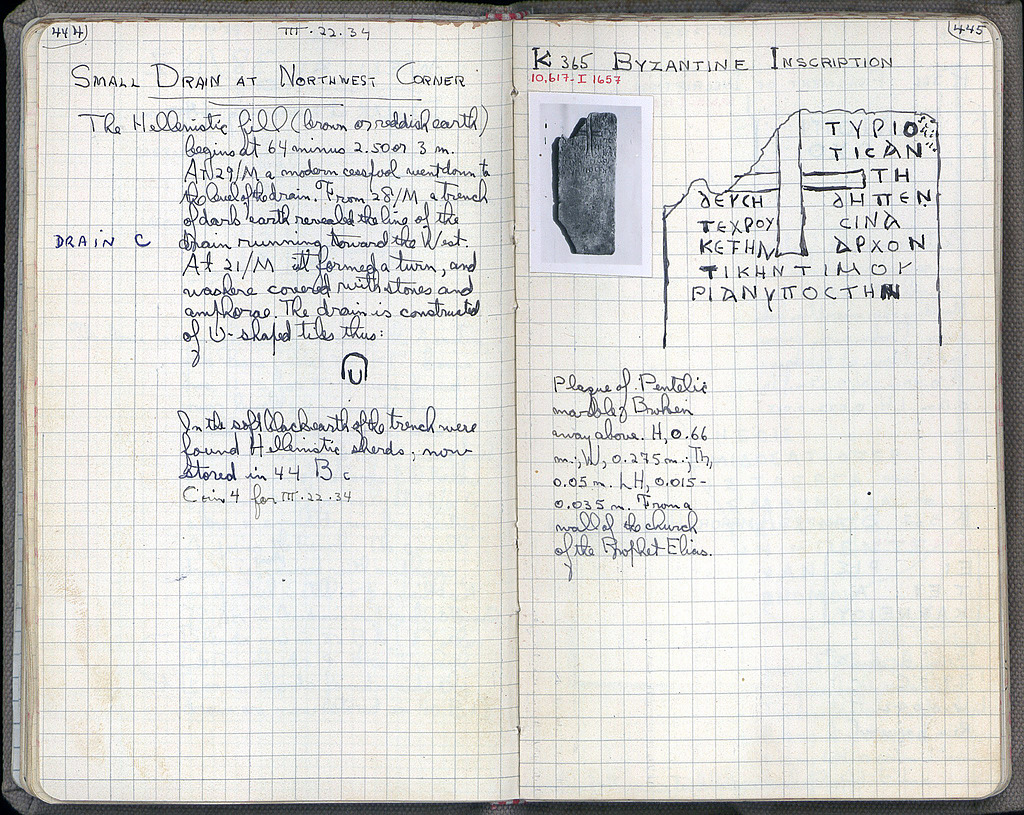 444
III.22.34
SMALL DRAIN AT NORTHWEST CORNER
The Hellenistic fill (brown or reddish earth)
begins at 64 minus 2.50 or 3 m.
At 29/M a modern cesspool went down to
the level of the drain. From 28/M a trench
of dark earth revealed the line of the
DRAIN C
drain running toward the West.
At 21/M it formed a turn, and
was here covered with stones and
amphorae. The drain is constructed
of U-shaped tiles thus:
In the soft black earth of the trench were
found Hellenistic sherds; now
stored in 44 B c
Coin 4 for III.22.34
445
K 365 BYZANTINE INSCRIPTION
10,617-I 1657
ΤΥΡΙΟ
ΤΙCΑΝ
ΤΗ
ΔΕΥCΗ ΔΗΠΕΝ
ΤΕΧΡΟΥ CΙΝΑ
ΚΕΤΗΝ ΑΡΧΟΝ
ΤΙΚΗΝΤΙΜΟΥ
ΡΙΑΝΥΠΟCΤΗΝ
Plaque of Pentelic
marble; Broken
away above. H, 0.66
m.; W, 0.275 m.; Th,
0.05 m. LH, 0.015-
0.035 m. From a
wall of the church
of the Prophet Elias.